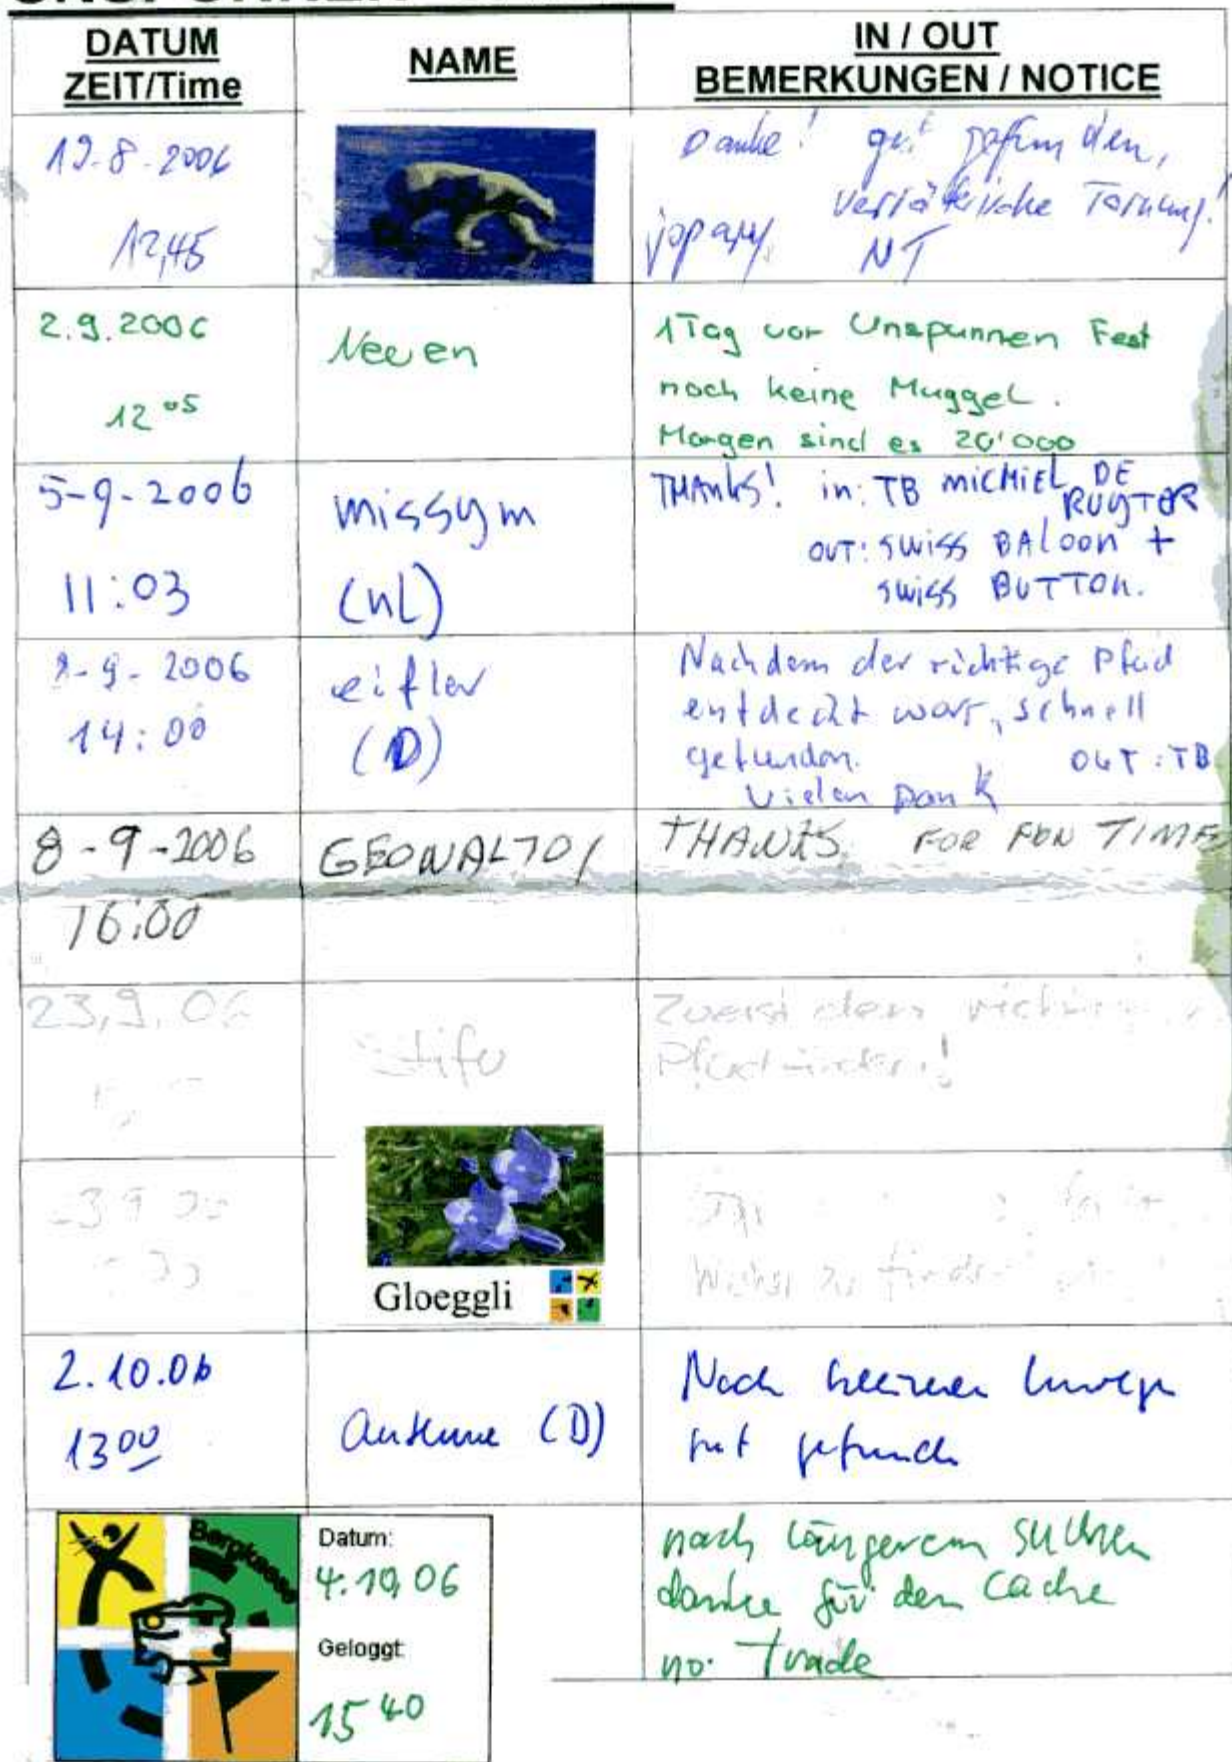 DATUM
ZEIT/Time
NAME
IN / OUT
BEMERKUNGEN / NOTICE
19-8-2006
12,45
Danke! gut gefunden,
verräterische Tarnung!
NT
2.9.2006
12 05
Neeven
1 Tag vor Unspunnen Fest
noch keine Muggel.
Morgen sind es 20'000
5-9-2006
11:03
missym
(nl)
THANKS! in: TB MICHIEL DE
RUYTER
OUT: SWISS BALOON +
SWISS BUTTON.
8-9-2006
14:00
eifler
(D)
Nachdem der richtige Pfad
entdeckt war, schnell
gefunden. OUT: TB
Vielen Dank
8-9-2006
16:00
THANKS FOR FUN TIME
23.9.06
Zuerst den
Gloeggli
zu finden
2.10.06
13 00
(D)
Nach kleinem Umweg
gut gefunden
Bergknose
Datum:
4.10.06
Geloggt:
15 40
nach längerem suchen
danke für den Cache
no. Trade